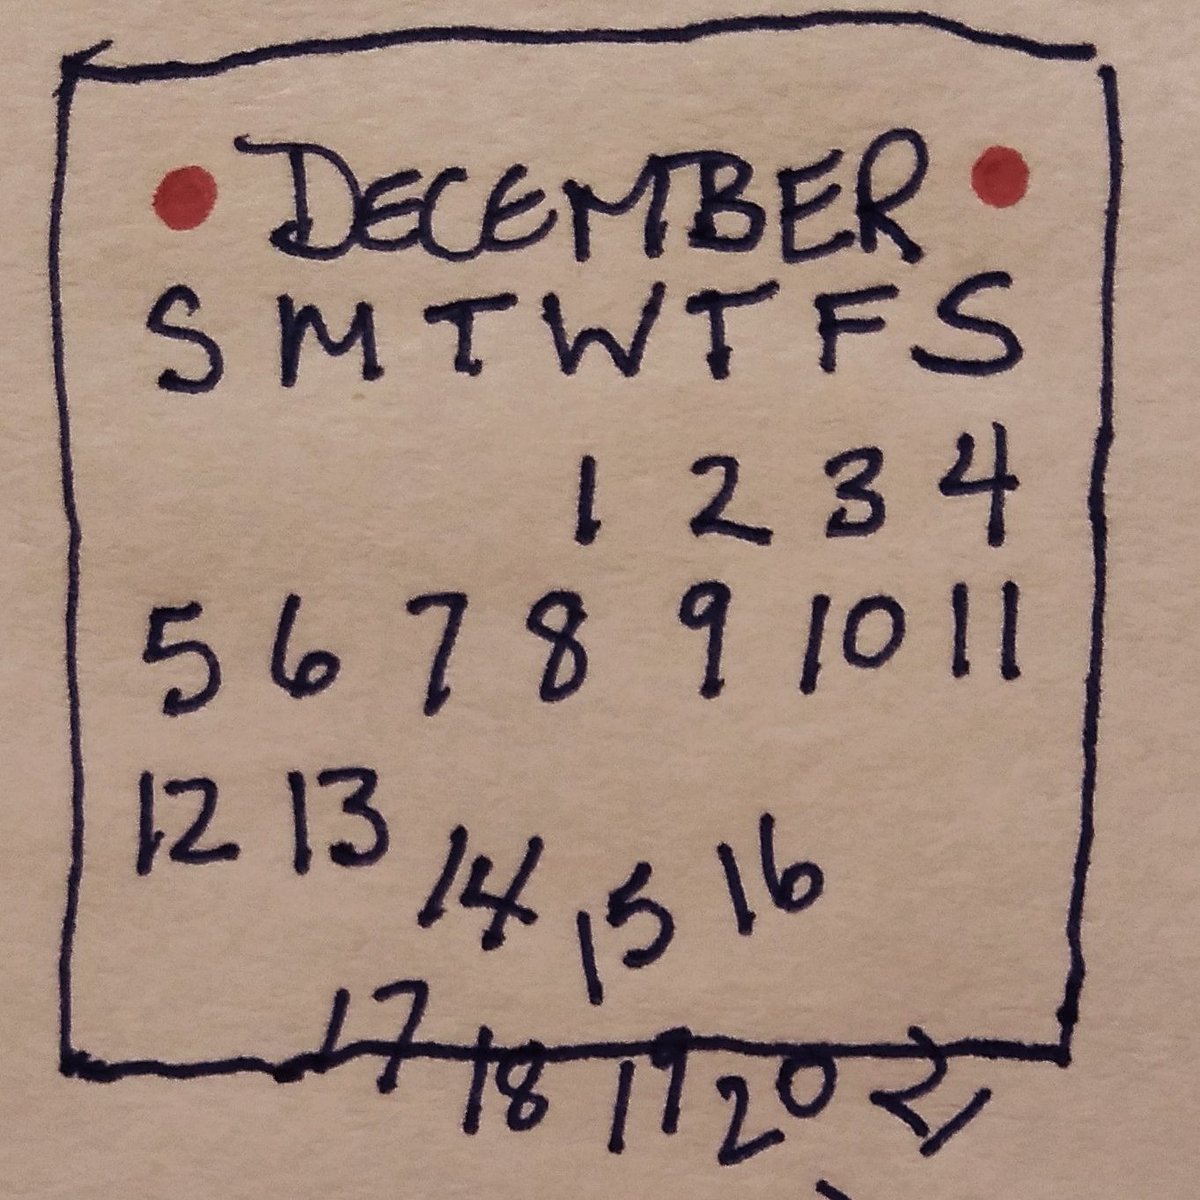 DECEMBER
S M T W T F S
1 2 3 4
5 6 7 8 9 10 11
12 13 14 15 16
17 18 19 20 21